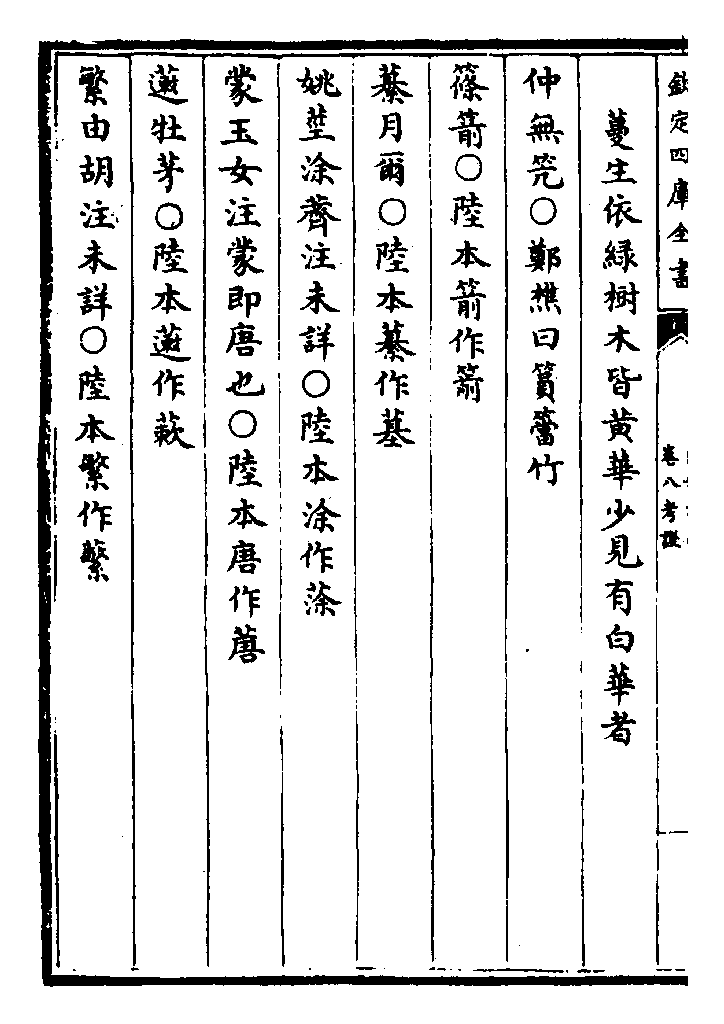 欽定四庫全書
卷八考證
蔓生依緑樹木皆黄華少見有白華者
仲無笐○鄭樵曰篔簹竹
篠箭○陸本箭作箭
藄月爾○陸本藄作基
姚莖涂薺注未詳○陸本涂作蒤
蒙玉女注蒙即唐也○陸本唐作蓎
藗牡茅○陸本藗作蔌
繁由胡注未詳○陸本繁作蘩